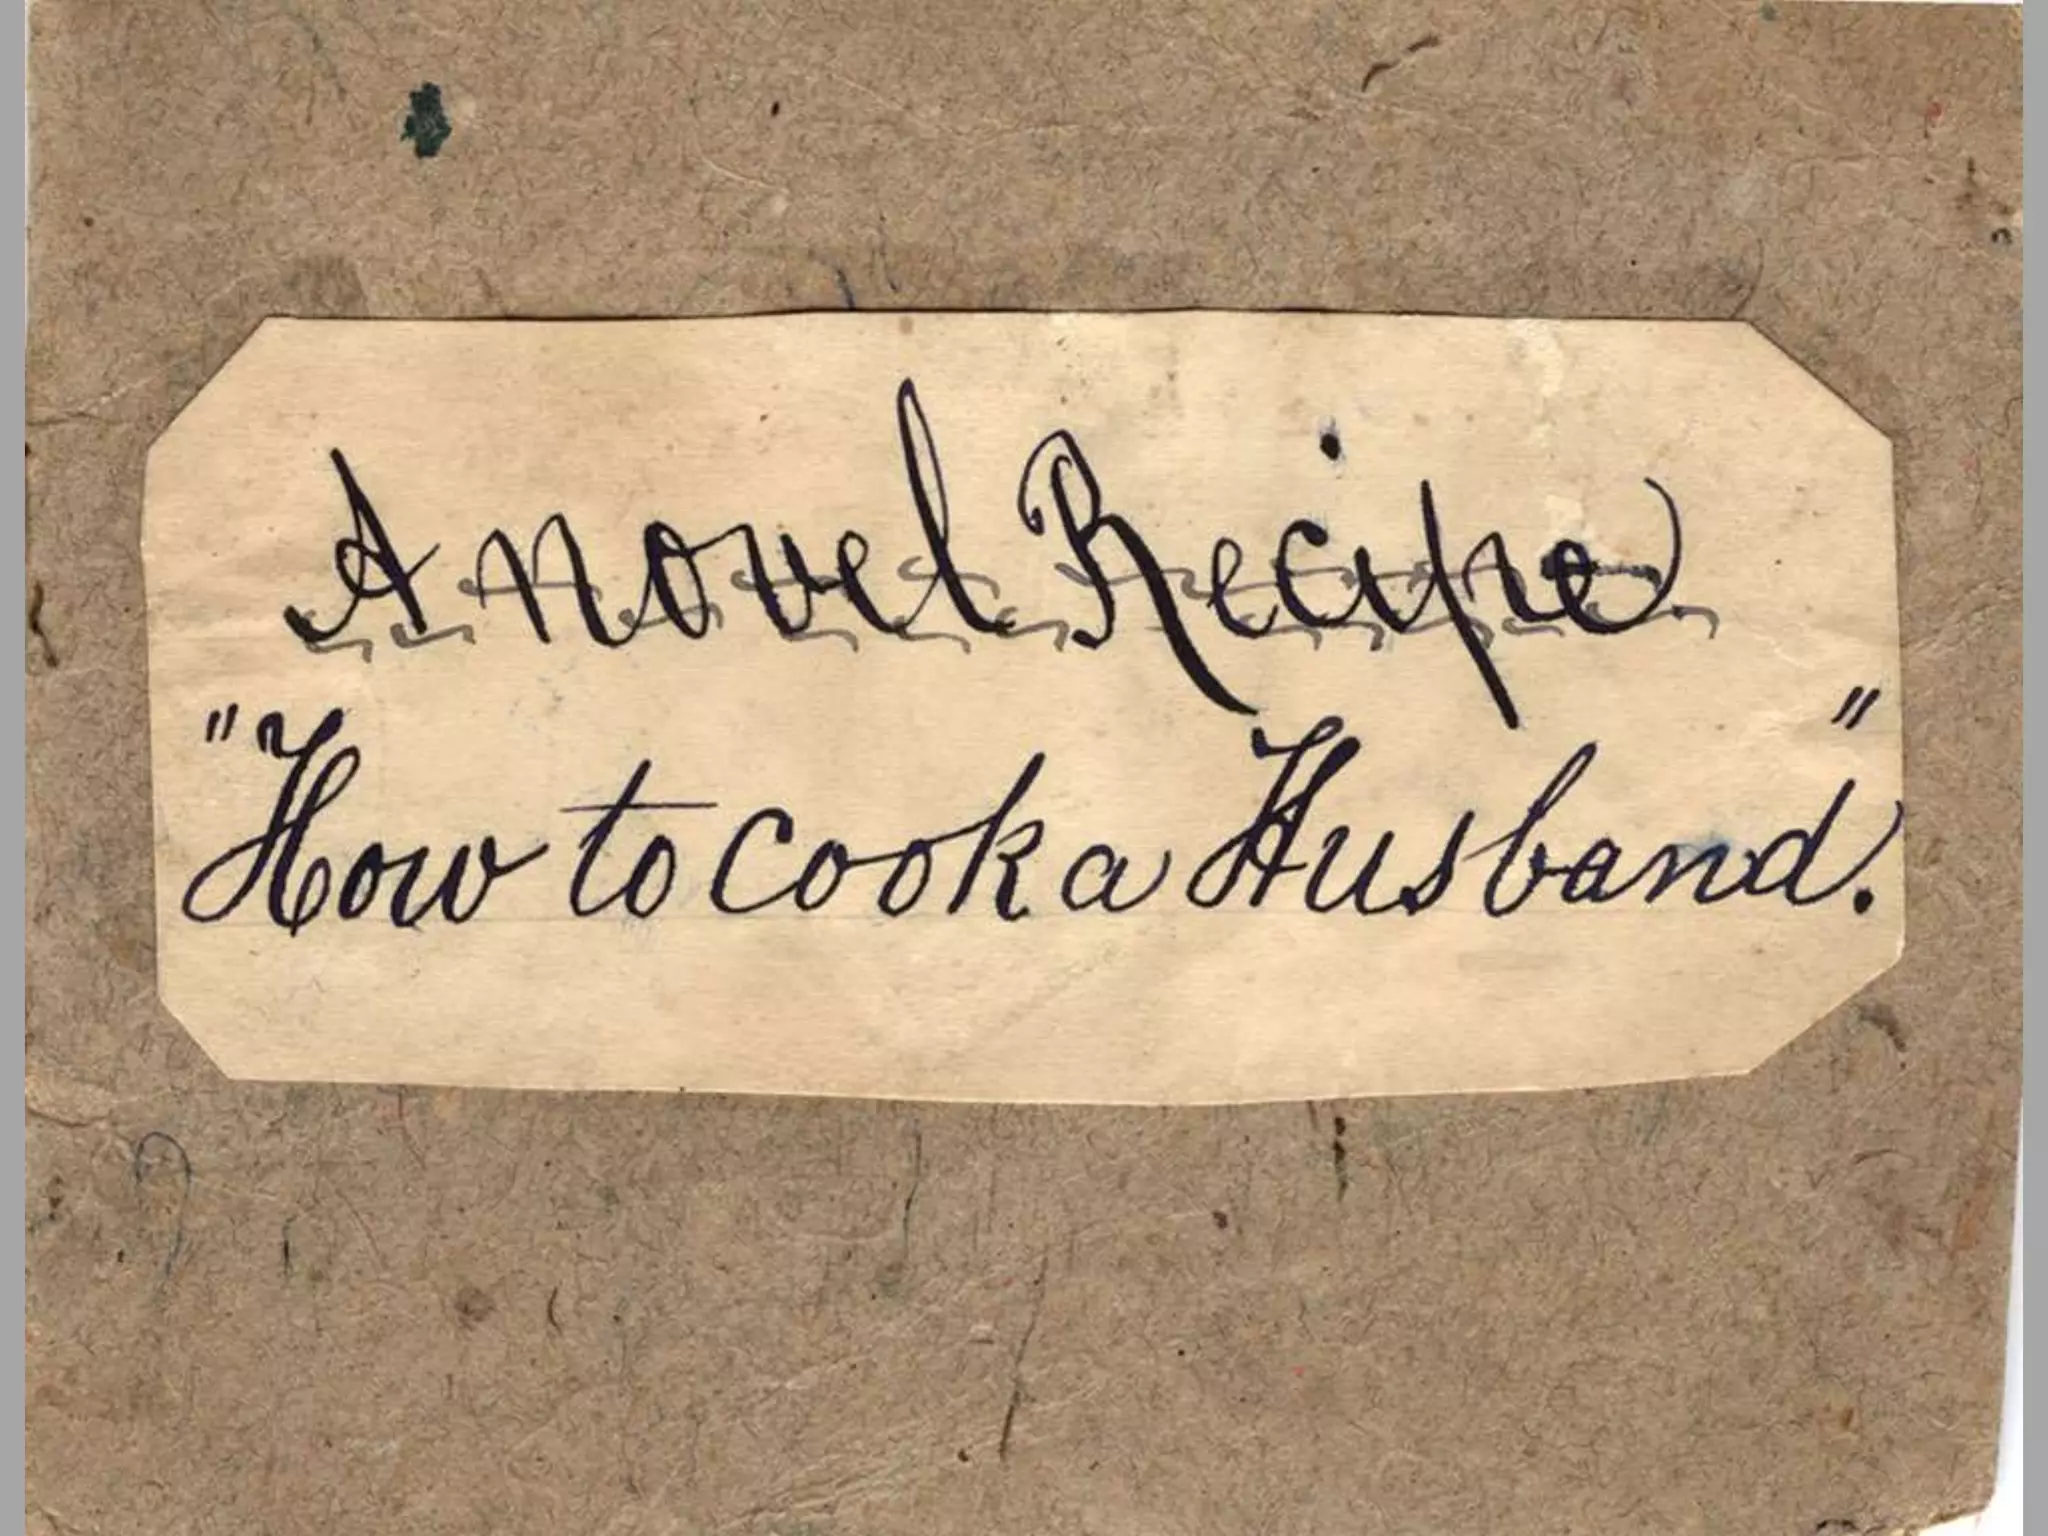 A novel Recipe
"How to cook a Husband."